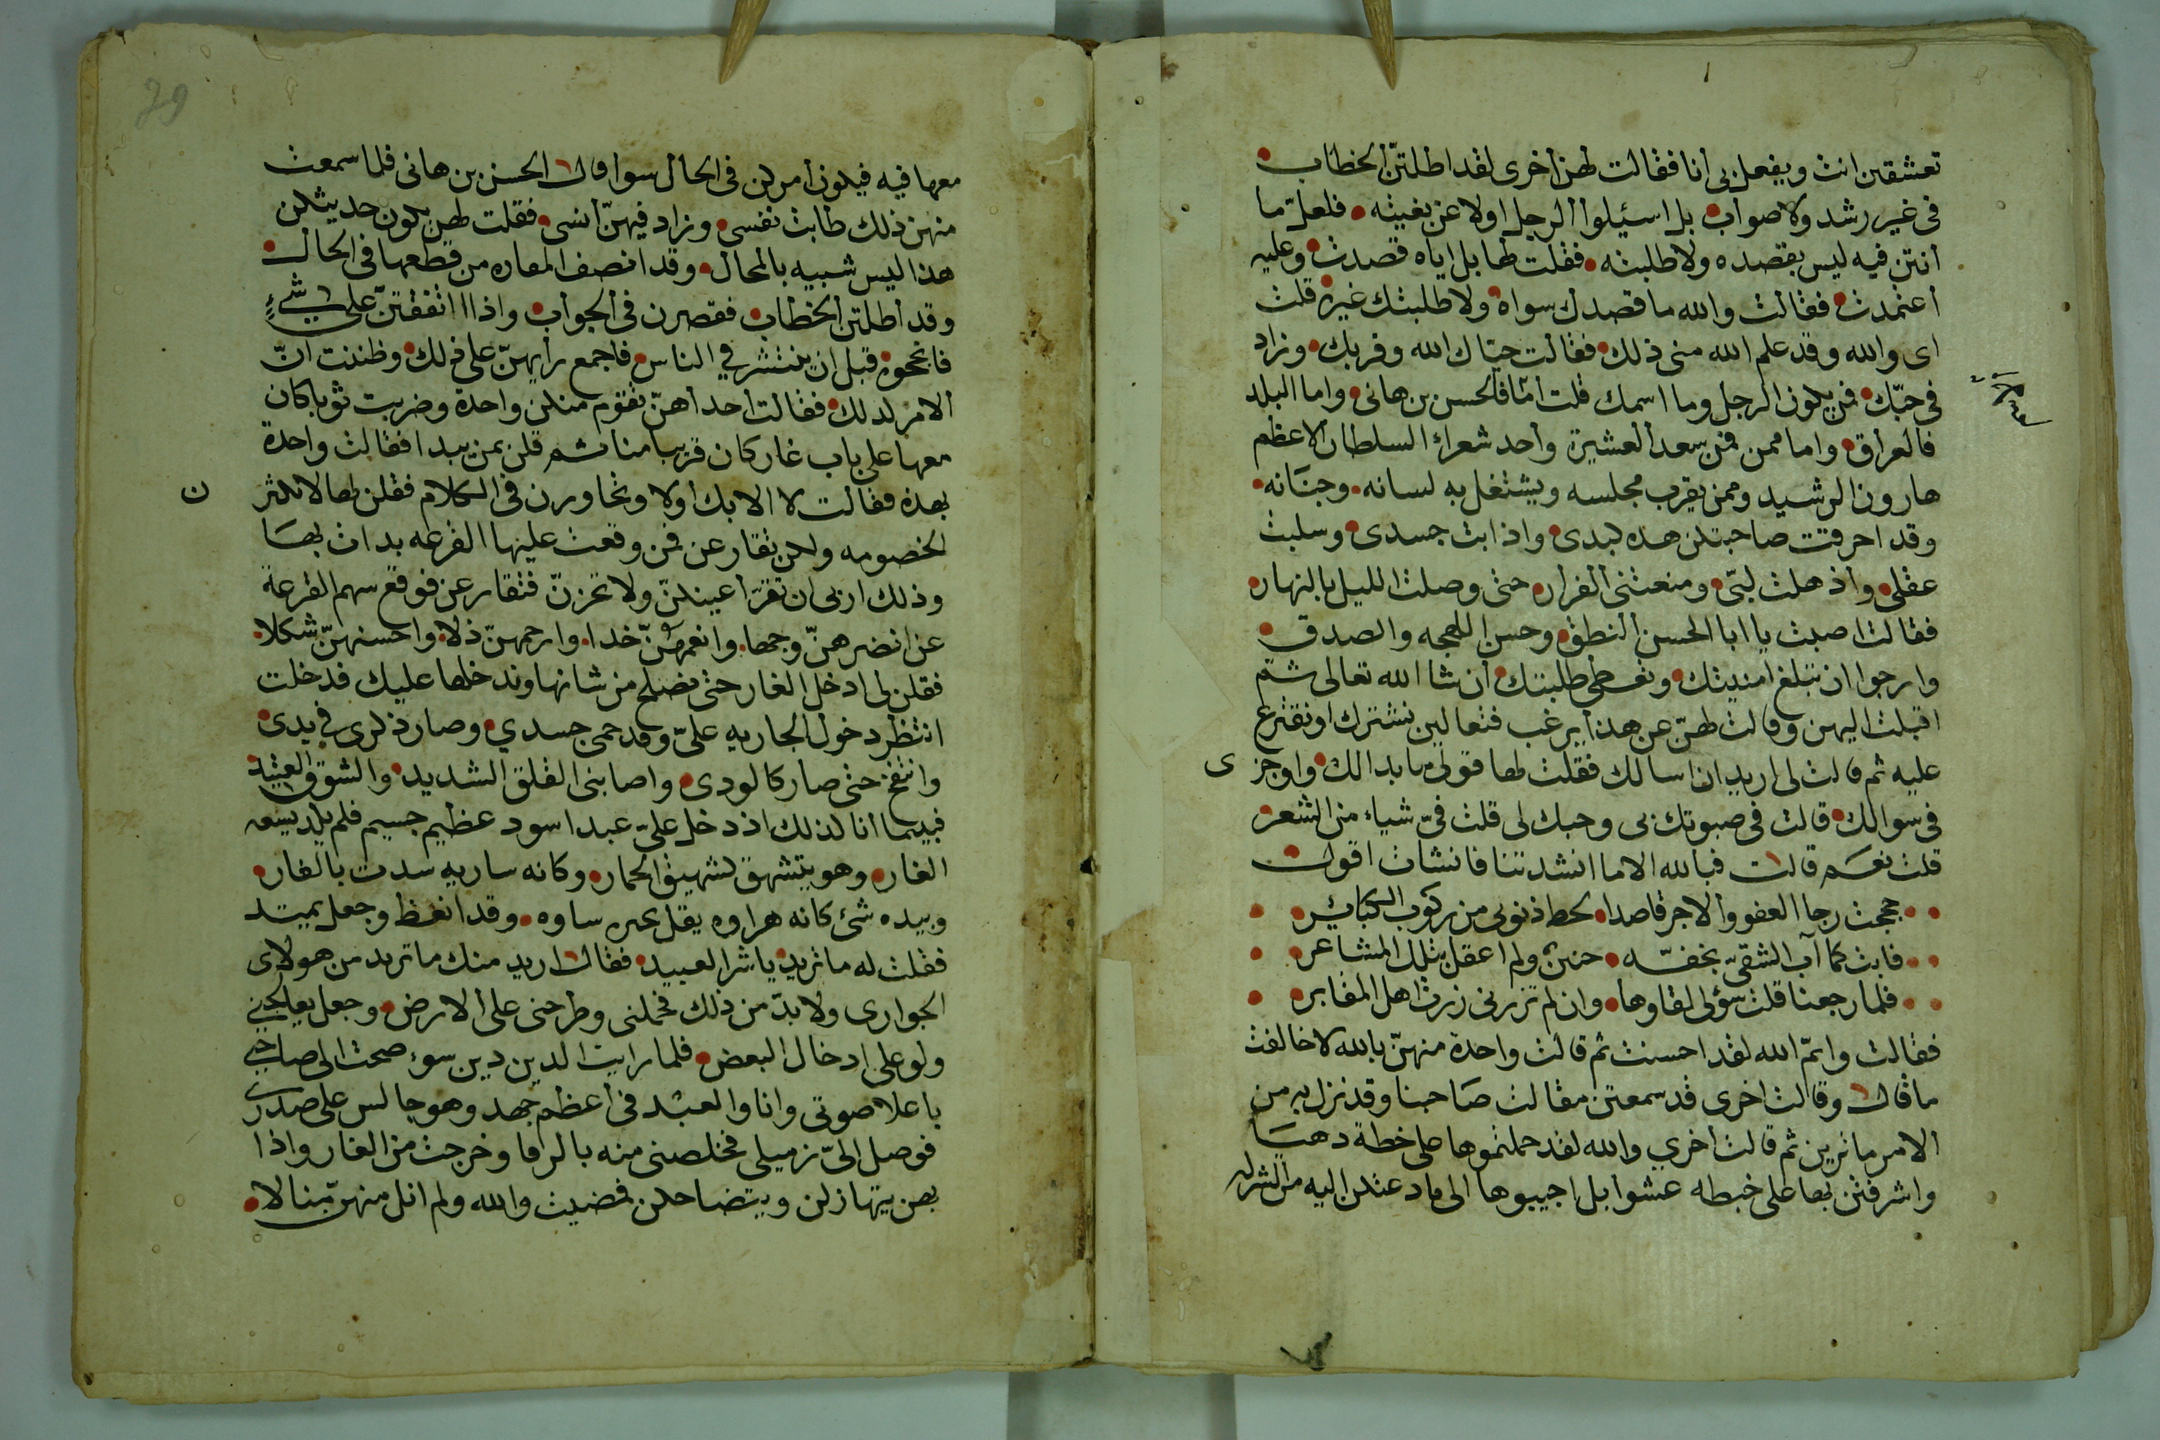 تعشقين انت ويفعل بى أنا فقالت لهن أخرى لقد اطلتنّ الخطاب
فى غير رشد ولا صواب بل اسئيلوا الرجل اولا عن بغيته فلعلّ ما
أنتن فيه ليس بقصده ولا طلبته فقلت لها بل اياه قصدت وعليه
اعتمدت فقالت والله ما قصدك سواه ولا طلبتك غيره قلت
اى والله وقد علم الله منى ذلك فقالت حيّاك الله وقربك وزاد
فى حبّك فمن يكون الرجل وما اسمك قلت أمّا فالحسن بن هانى واما البلد
فالعراق واما ممن فمن سعد العشيرة وأحد شعراء السلطان الاعظم
هارون الرشيد وممن يقرب مجلسه ويشتغل به لسانه وجنَانه
وقد احرقت صاحبتكن هده كبدى واذابت جسدى وسلبت
عقلى وأذهلت لبّى ومنعتنى القرار حتى وصلت الليل بالنهار
فقالت اصبت يا ابا الحسن النطق وحسن اللهجه والصدق
وارجوا ان تبلغ امنيتك وتعطى طلبتك أن شا الله تعالى ثم
اقبلت اليهن وقالت لهنّ عن هذا يرغب فتعالين نشترك او نقترع
عليه ثم قالت لى اريد ان اسالك فقلت لها قولى ما بدا لك واوجز ى
فى سوالك قالت فى صبوتك بى وحبك لى قلت فىّ شياء من الشعر
قلت نعم قالت فبالله الا ما انشدتنا فانشات اقول
حججت رجا العفو والاجر قاصدا لحط ذنوبى من ركوب الكبائر
فابت كما آب الشقىّ بخفّه حنين ولم اعقل بتلك المشاعر
فلما رجعنا قلت سؤلى لقاوها وان لم تزرنى زرت اهل المقابر
فقالت وايمّ الله لقد احسنت ثم قالت واحدة منهنّ بالله لا خالفت
ما قال وقالت اخرى قد سمعتن مقالت صَاحبنا وقد نزل به من
الامر ما ترين ثم قالت أخري والله لقد حملتموها على خطة دهيَا
واشرفتن بها على خبطه عشوا بل اجيبوها الى ما دعتكن اليه من الشركه
معها فيه فيكون أمركن فى الحال سوا قال الحسن بن هانى فلما سمعت
منهن ذلك طابت نفسى وزاد فيهنّ أنسى فقلت لهن يكون حديثكن
هذا ليس شبيه بالمحال وقد انصف المقاره من قطعها فى الحال
وقد أطلتن الخطاب فقصرن فى الجواب واذا اتفقتنّ على شئٍ
فانجحوه قبل ان ينتشر في الناس فاجمع رأيهنّ على ذلك وظننت انّ
الامر لدلك فقالت أحداهنّ تقوم منكن واحدة وضربت ثوبا كان
معها على باب غار كان قريبا منا ثم قلن بمن يبدا فقالت واحدة
بهذه فقالت لا الا بك اولا وتحاورن فى الكلام فقلن لها لا تكثر ن
الخصومه ولكن تقارعن فمن وقعت عليها القرعه بدات بهَا
وذلك اربى ان تقرّ أعينكنّ ولا تحزنّ فتقارعن فوقع سهم القرعة
عن انضرهنّ وجها وانعمهنّ خدا وارجمهنّ ذلا واحسنهنّ شكلا
فقلن لى ادخل الغار حتى نصلح من شانها وندخلها عليك فدخلت
انتظر دخول الجاريه علىّ وقد حمى جسدي وصار ذكرى فى يدى
وانتفخ حتى صار كالودى واصابنى القلق الشديد والشوق العتيد
فبيما انا لذلك اذ دخل علىّ عبد اسود عظيم جسيم فلم يكد يسعه
الغار وهو يتشهق كشهيق الحمار وكانه ساريه سدت بالغار
وبيده شئ كانه هراوه وقد انعظ وجعل يمتد
فقلت له ما تريد يا شر العبيد فقال اريد منك ما تريد من هولاى
الجوارى ولا بدّ من ذلك فحملنى وطرحنى على الارض وجعل يعالجنى
ولو على ادخال البعض فلما رايت الدين دين سوء صحت الى صاحبى
باعلا صوتى وانا والعبد فى أعظم جهد وهو جالس على صدرى
فوصل الىّ زميلى فخلصنى منه بالرفا وخرجت من الغار واذا
بهن يتهازلن ويتضاحكن فمضيت والله ولم انل منهنّ منالا